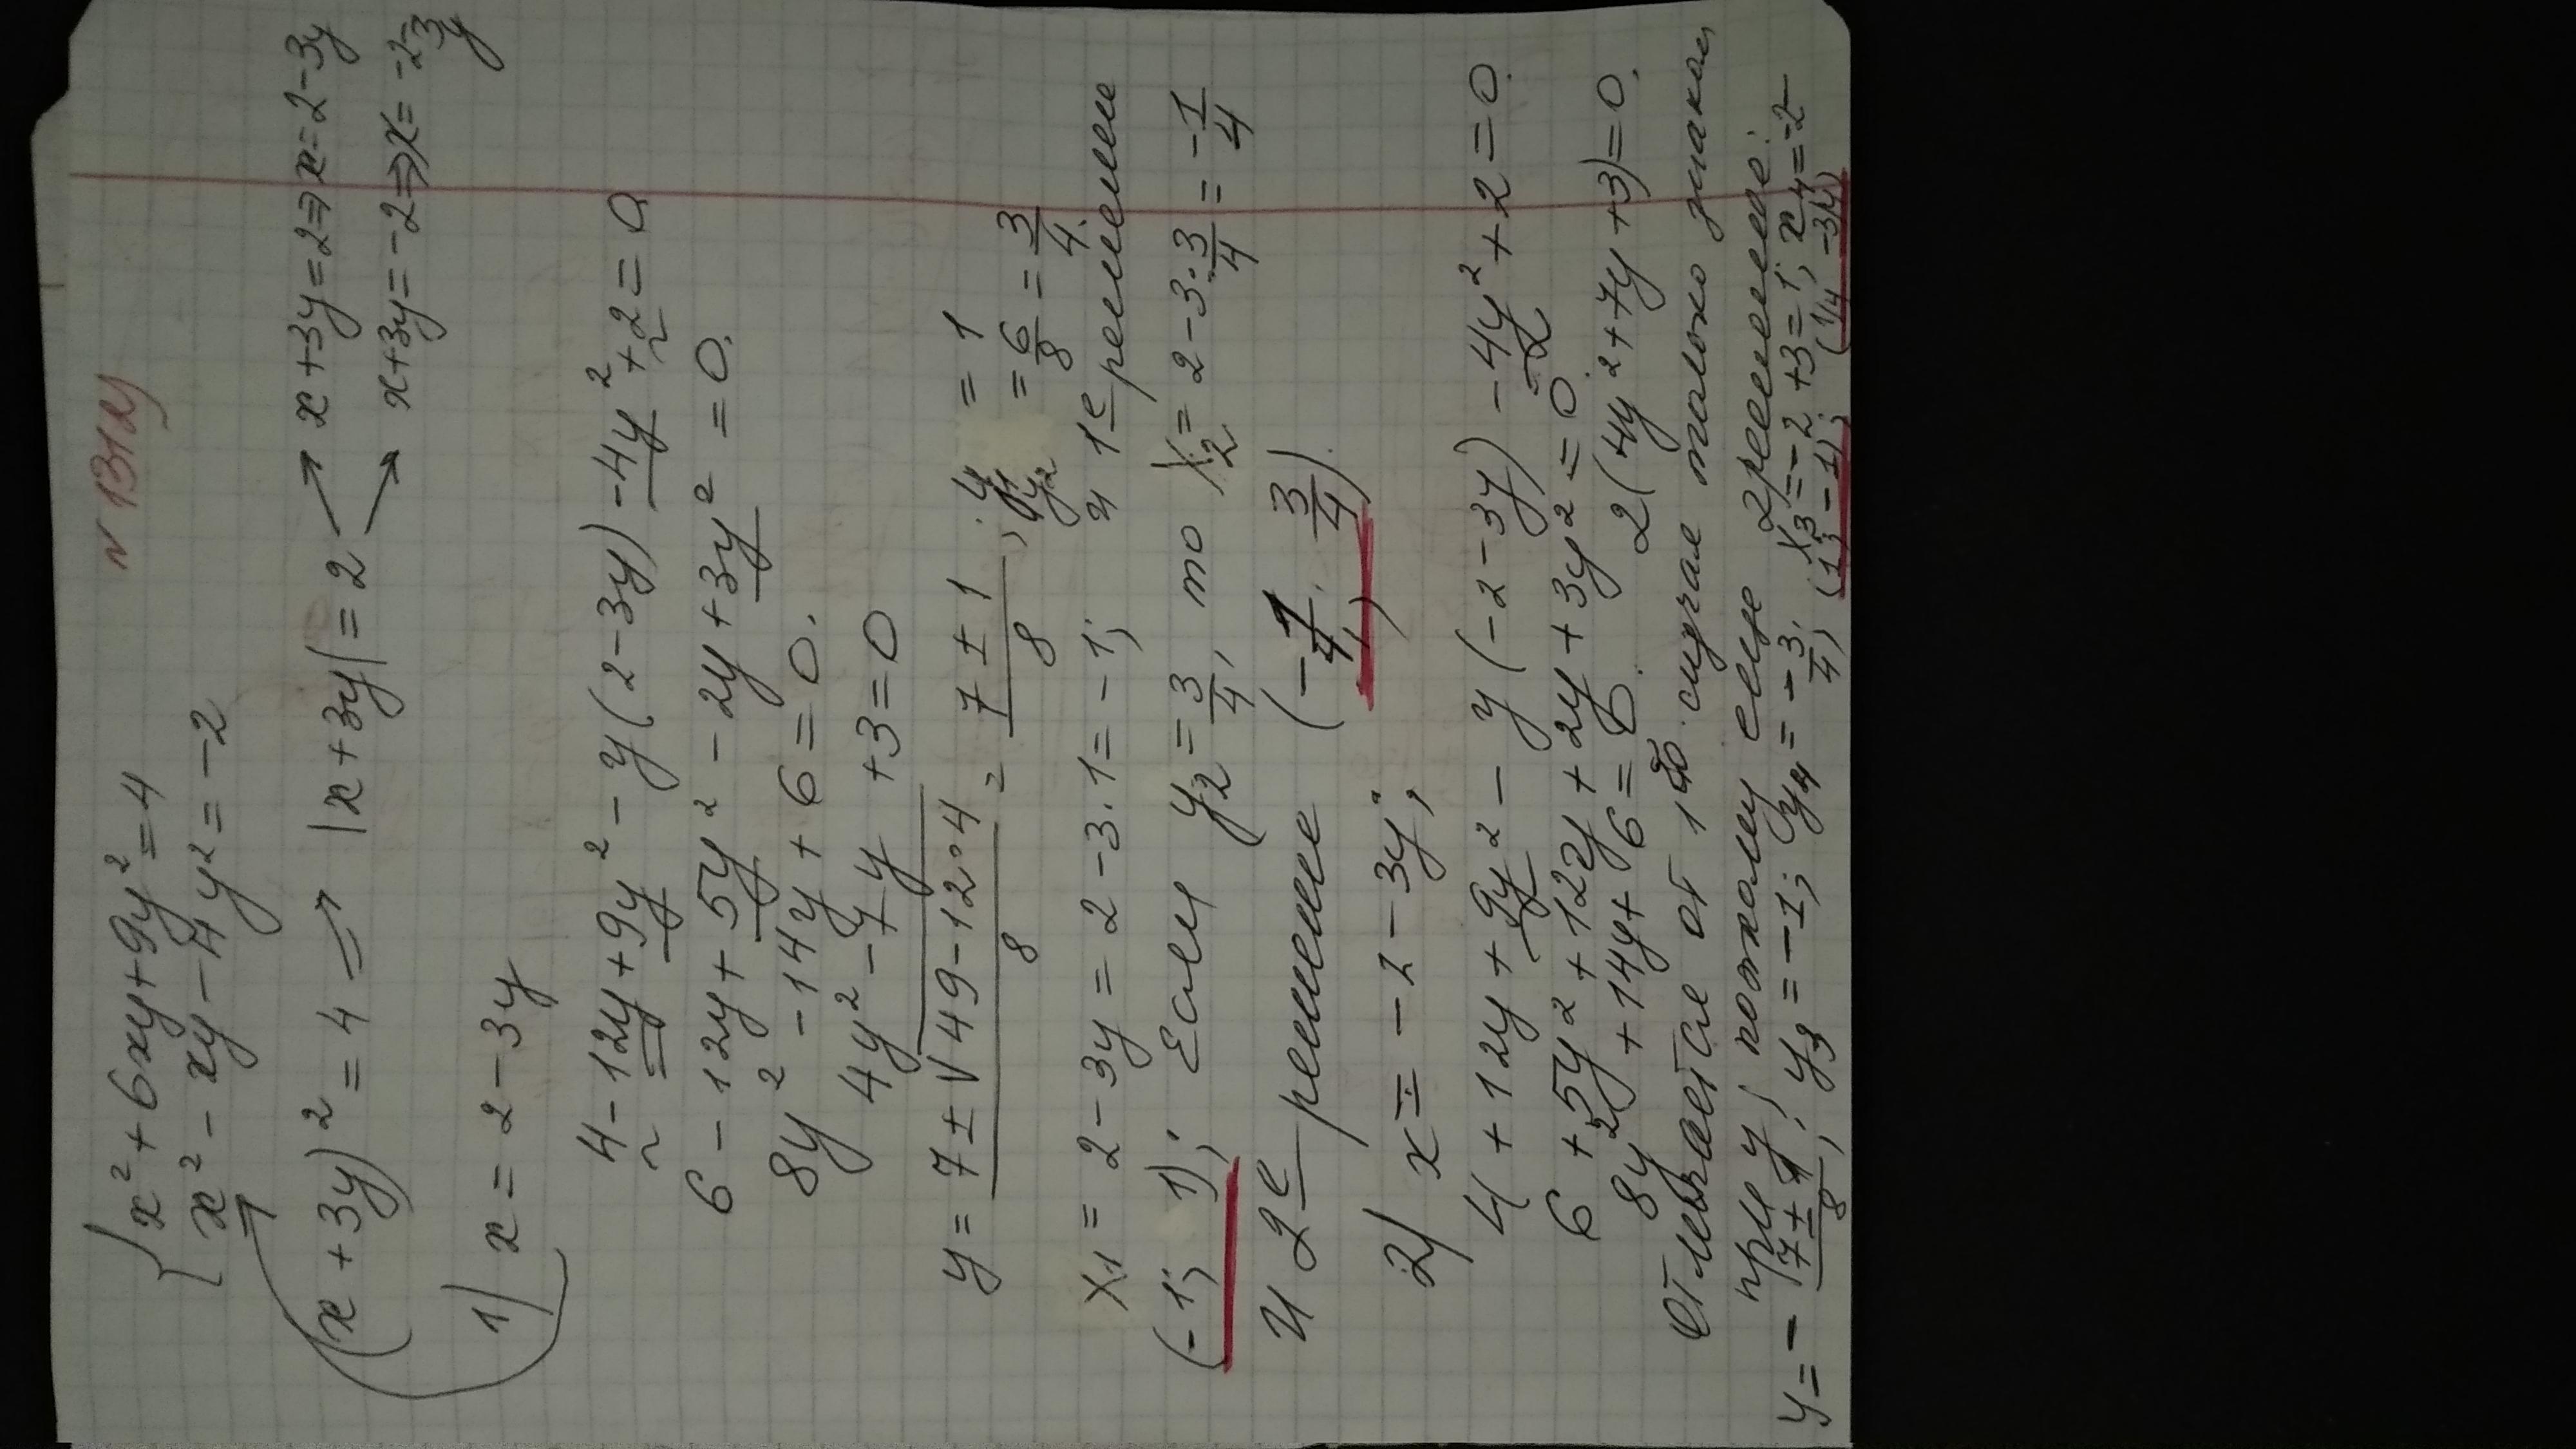 N 131 2)
{ x² + 6xy + 9y² = 4
x² - xy - 4y² = -2
(x + 3y)² = 4 ⇒ |x + 3y| = 2 → x + 3y = 2 ⇒ x = 2 - 3y
→ x + 3y = -2 ⇒ x = -2 - 3y
1) x = 2 - 3y
4 - 12y + 9y² - y(2 - 3y) - 4y² + 2 = 0
6 - 12y + 5y² - 2y + 3y² = 0.
8y² - 14y + 6 = 0.
4y² - 7y + 3 = 0
y = (7 ± √49 - 12·4)/8 = (7 ± 1)/8; y₁ = 1
y₂ = 6/8 = 3/4.
x₁ = 2 - 3y = 2 - 3·1 = -1; и 1е решение
(-1; 1); Если y₂ = 3/4, то x₂ = 2 - 3·3/4 = -1/4
и 2е решение (-1/4; 3/4).
2) x = -2 - 3y;
4 + 12y + 9y² - y(-2 - 3y) - 4y² + 2 = 0.
6 + 5y² + 12y + 2y + 3y² = 0
8y² + 14y + 6 = 0. 2(4y² + 7y + 3) = 0.
отличается от 1го случая только знаком
при y, поэтому еще 2 решение:
y = -(7 ± 1)/8; y₃ = -1; y₄ = -3/4; x₃ = -2 + 3 = 1; x₄ = -2
(1; -1); (1/4 -3/4)